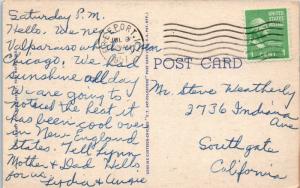 Saturday P.M.
Hello. We near
Valparaiso which is near
Chicago. We had
sunshine all day
We are going to
noticed the heat it
has been cool over
in New England
States. Tell Lynn
Mother & Dad Hello
for us.
Lydia & Aussie
JUL 3
POST CARD
1 CENT 1
Mr Steve Weatherly
2736 Indiana
Ave
Southgate
California